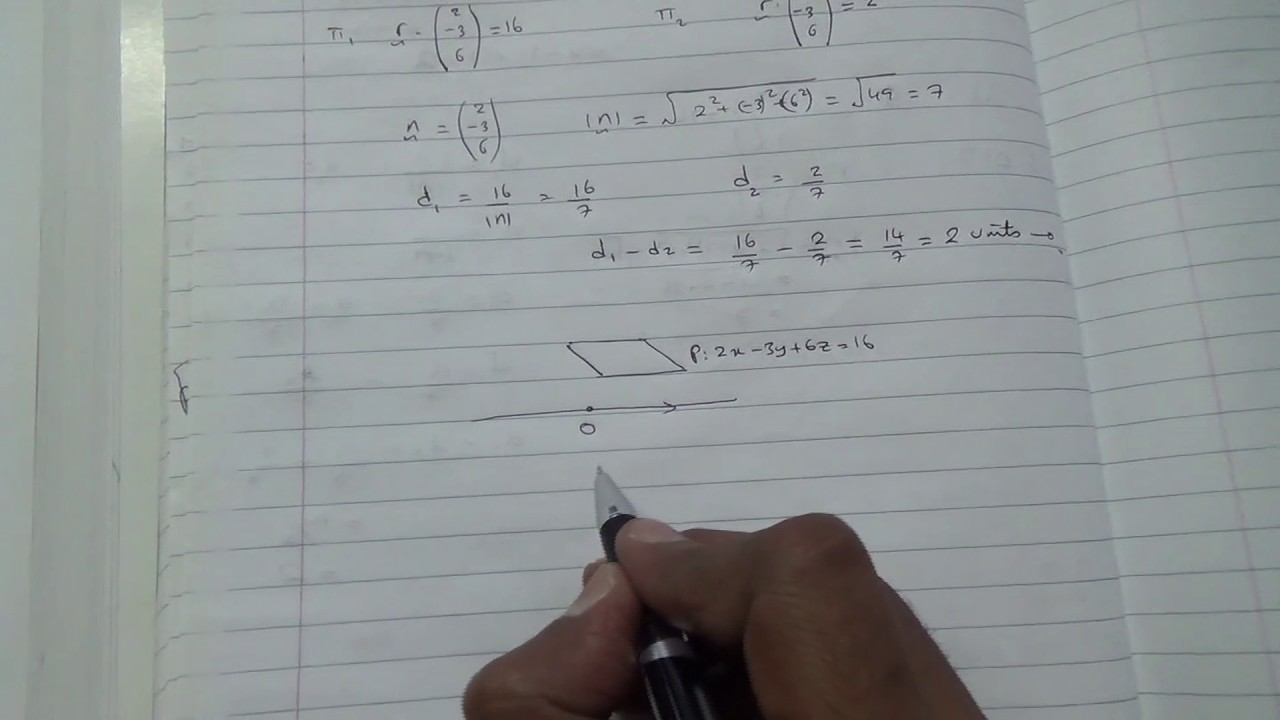 π₁ r · (2 -3 6) = 16 π₂ r · (-3 6) = 2
n = (2 -3 6) |n| = √(2² + (-3)² + (6²)) = √49 = 7
d₁ = 16/|n| = 16/7 d₂ = 2/7
d₁ - d₂ = 16/7 - 2/7 = 14/7 = 2 units
P: 2x - 3y + 6z = 16
O